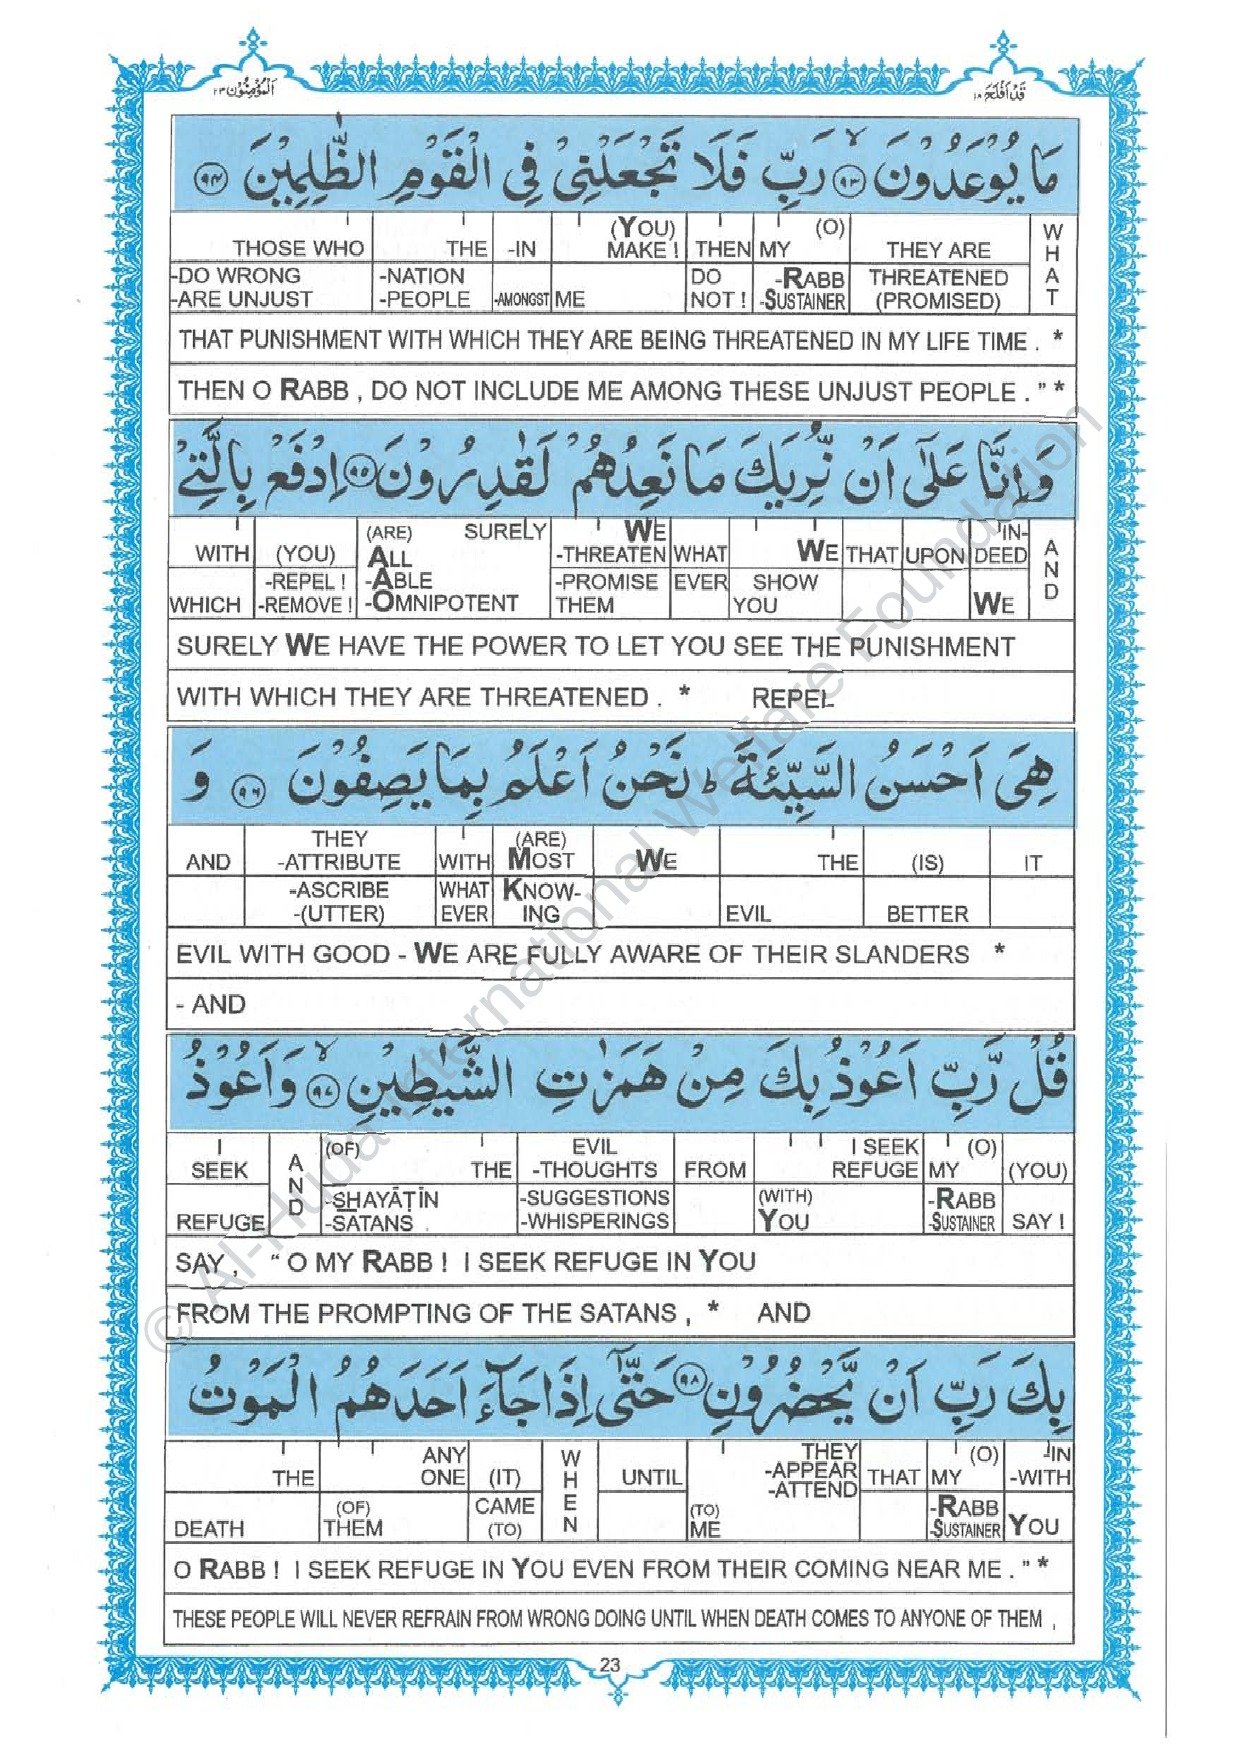 قَدْ اَفْلَحَ ١٨
اَلْمُؤْمِنُوْن ٢٣
مَا يُوْعَدُوْنَ ﴿٩٣﴾ۙ رَبِّ فَلَا تَجْعَلْنِيْ فِي الْقَوْمِ الظّٰلِمِيْنَ ﴿٩٤﴾
THOSE WHO THE -IN (YOU) MAKE ! THEN MY (O) THEY ARE WHAT
-DO WRONG -NATION DO -RABB THREATENED
-ARE UNJUST -PEOPLE -AMONGST ME NOT ! -SUSTAINER (PROMISED)
THAT PUNISHMENT WITH WHICH THEY ARE BEING THREATENED IN MY LIFE TIME . *
THEN O RABB , DO NOT INCLUDE ME AMONG THESE UNJUST PEOPLE . " *
وَ اِنَّا عَلٰٓى اَنْ نُّرِيَكَ مَا نَعِدُهُمْ لَقٰدِرُوْنَ ﴿٩٥﴾ اِدْفَعْ بِالَّتِيْ
(ARE) SURELY WE IN-
WITH (YOU) ALL -THREATEN WHAT WE THAT UPON DEED AND
-REPEL ! -ABLE -PROMISE EVER SHOW
WHICH -REMOVE ! -OMNIPOTENT THEM YOU WE
SURELY WE HAVE THE POWER TO LET YOU SEE THE PUNISHMENT
WITH WHICH THEY ARE THREATENED . * REPEL
هِيَ اَحْسَنُ السَّيِّئَةَ ؕ نَحْنُ اَعْلَمُ بِمَا يَصِفُوْنَ ﴿٩٦﴾ وَ
THEY (ARE)
AND -ATTRIBUTE WITH MOST WE THE (IS) IT
-ASCRIBE WHAT KNOW-
-(UTTER) EVER ING EVIL BETTER
EVIL WITH GOOD - WE ARE FULLY AWARE OF THEIR SLANDERS *
- AND
قُلْ رَّبِّ اَعُوْذُ بِكَ مِنْ هَمَزٰتِ الشَّيٰطِيْنِ ﴿٩٧﴾ۙ وَ اَعُوْذُ
I (OF) EVIL I SEEK (O)
SEEK AND THE -THOUGHTS FROM REFUGE MY (YOU)
-SHAYĀṬĪN -SUGGESTIONS (WITH) -RABB
REFUGE -SATANS . -WHISPERINGS YOU -SUSTAINER SAY !
SAY , " O MY RABB ! I SEEK REFUGE IN YOU
FROM THE PROMPTING OF THE SATANS , * AND
بِكَ رَبِّ اَنْ يَّحْضُرُوْنِ ﴿٩٨﴾ حَتّٰٓى اِذَا جَآءَ اَحَدَهُمُ الْمَوْتُ
ANY THEY (O) -IN
THE ONE (IT) WHEN UNTIL -APPEAR THAT MY -WITH
-ATTEND
(OF) CAME (TO) -RABB
DEATH THEM (TO) ME -SUSTAINER YOU
O RABB ! I SEEK REFUGE IN YOU EVEN FROM THEIR COMING NEAR ME . " *
THESE PEOPLE WILL NEVER REFRAIN FROM WRONG DOING UNTIL WHEN DEATH COMES TO ANYONE OF THEM ,
23
© Al-Huda International Welfare Foundation